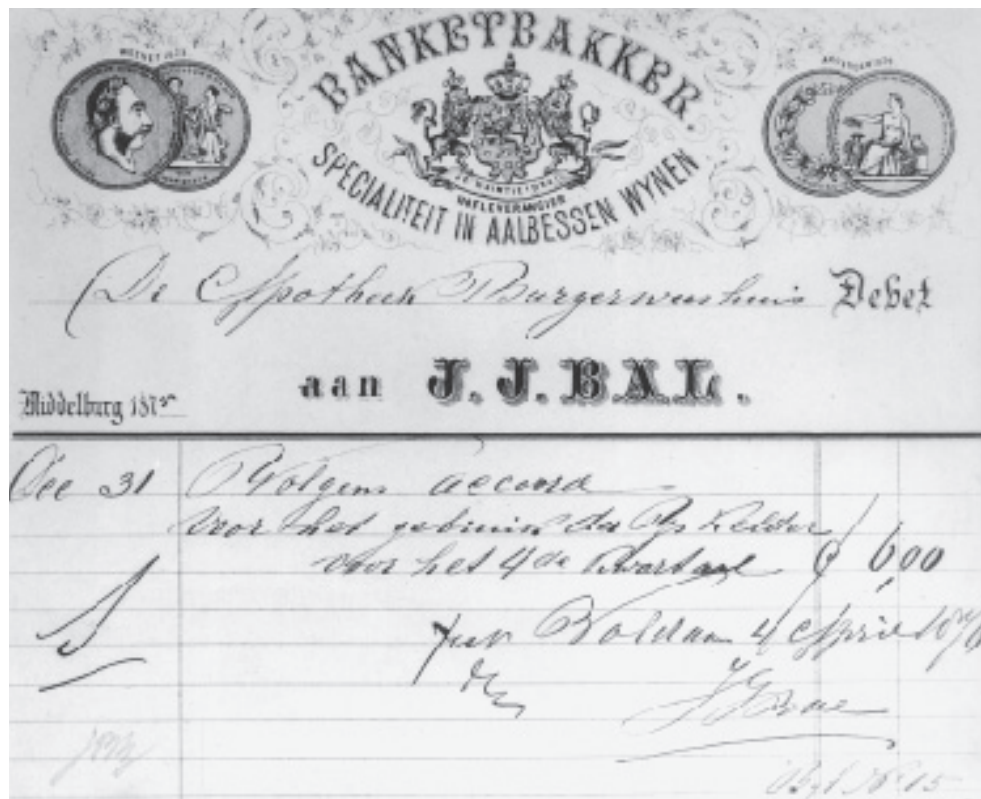 BANKETBAKKER.
HOFLEVERANCIER
SPECIALITEIT IN AALBESSEN WYNEN
De Apotheek Burgerweeshuis Debet
aan J. J. BAL.
Middelburg 187
Dec 31 Volgens accoord
voor het gebruik der Ys Kelder
voor het 4de Kwartaal f 6,00
Voldaan 4 April
JJBal